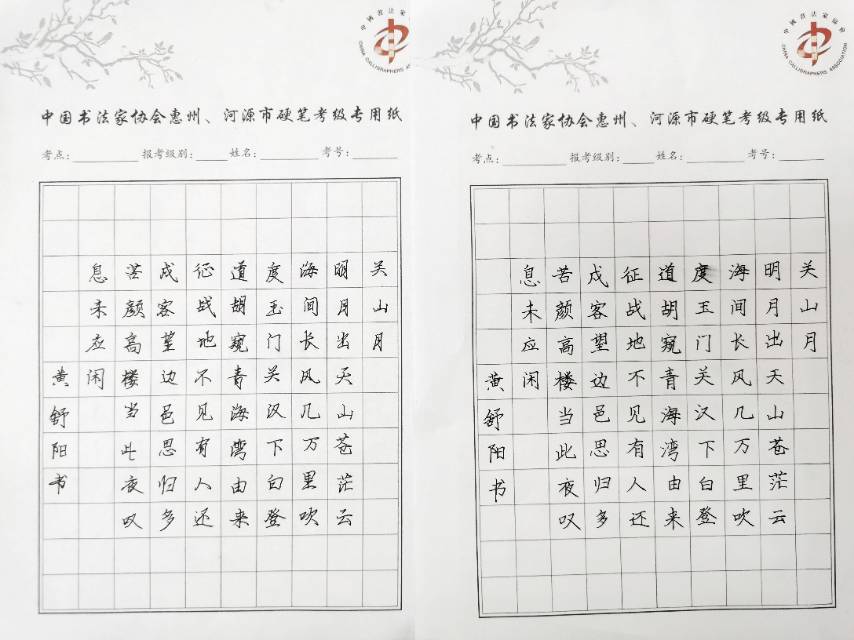 中國書法家協會
CHINA CALLIGRAPHERS AS
中国书法家协会惠州、河源市硬笔考级专用纸
考点: 报考级别: 姓名: 考号:
关山月
明月出天山苍茫云
海间长风几万里吹
度玉门关汉下白登
道胡窥青海湾由来
征战地不见有人还
戍客望边邑思归多
苦颜高楼当此夜叹
息未应闲
黄舒阳书
中國書法家協會
CHINA CALLIGRAPHERS ASSOCIATION
中国书法家协会惠州、河源市硬笔考级专用纸
考点: 报考级别: 姓名: 考号:
关山月
明月出天山苍茫云
海间长风几万里吹
度玉门关汉下白登
道胡窥青海湾由来
征战地不见有人还
戍客望边邑思归多
苦颜高楼当此夜叹
息未应闲
黄舒阳书